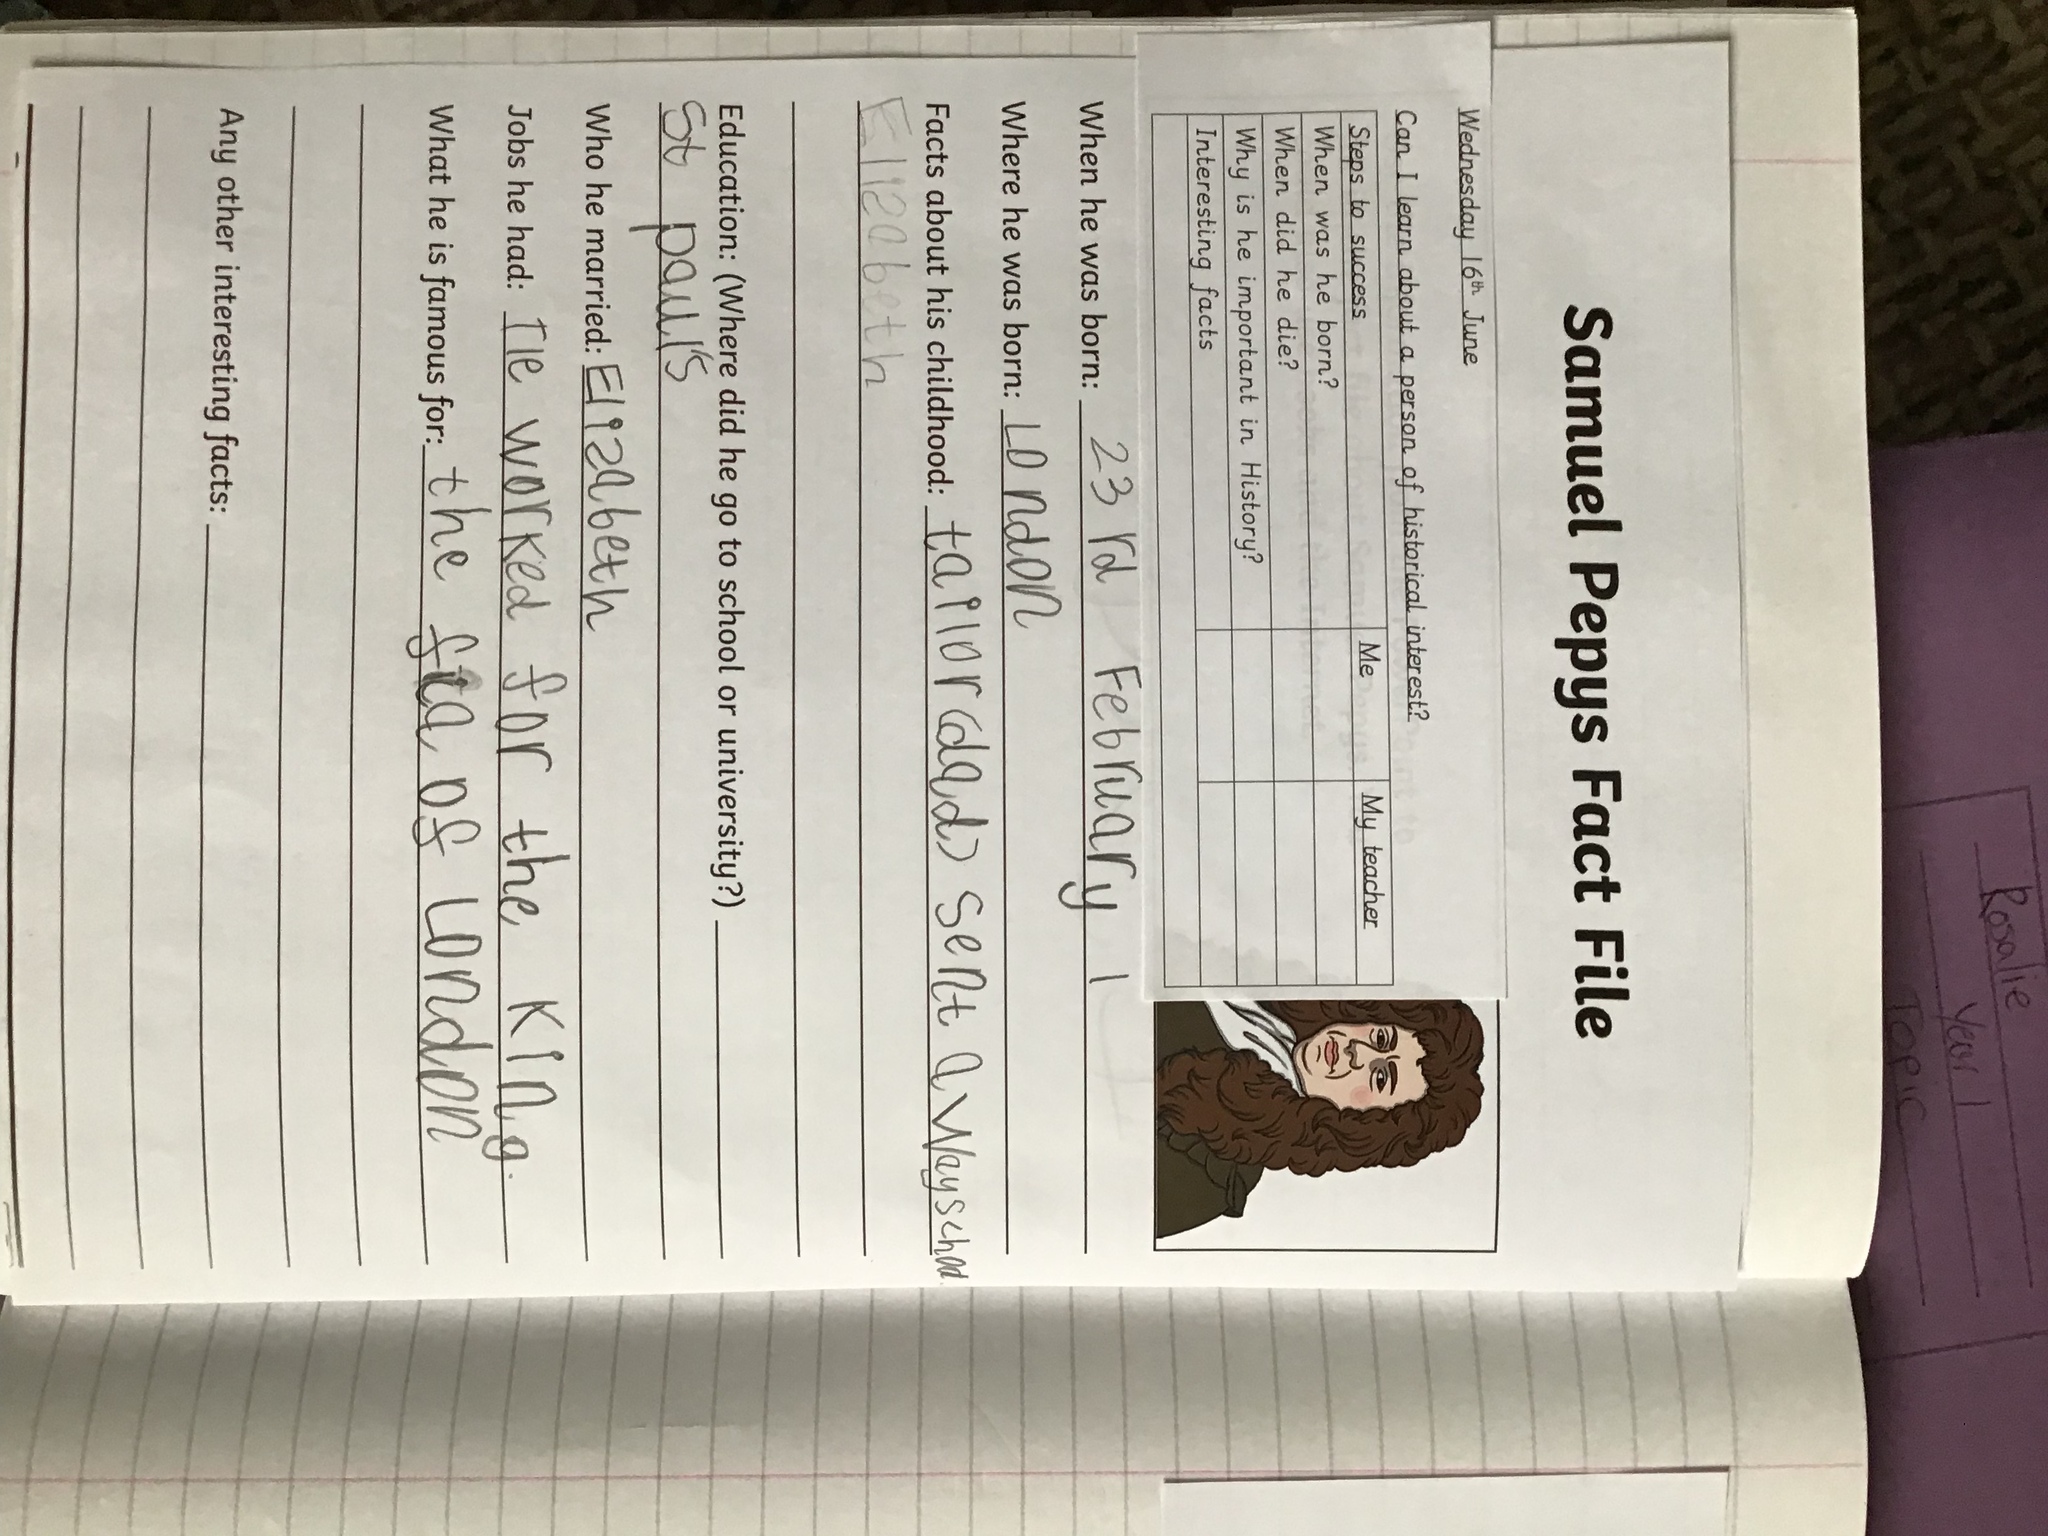 Samuel Pepys Fact File
Wednesday 16th June
Can I learn about a person of historical interest?
Steps to success Me My teacher
When was he born?
When did he die?
Why is he important in History?
Interesting facts
When he was born: 23rd February 1
Where he was born: London
Facts about his childhood: tailor (dad) sent away school.
Elizabeth
Education: (Where did he go to school or university?)
St paul's
Who he married: Elizabeth
Jobs he had: He worked for the King.
What he is famous for: the fia of London
Any other interesting facts:
Rosalie
Year 1
Topic